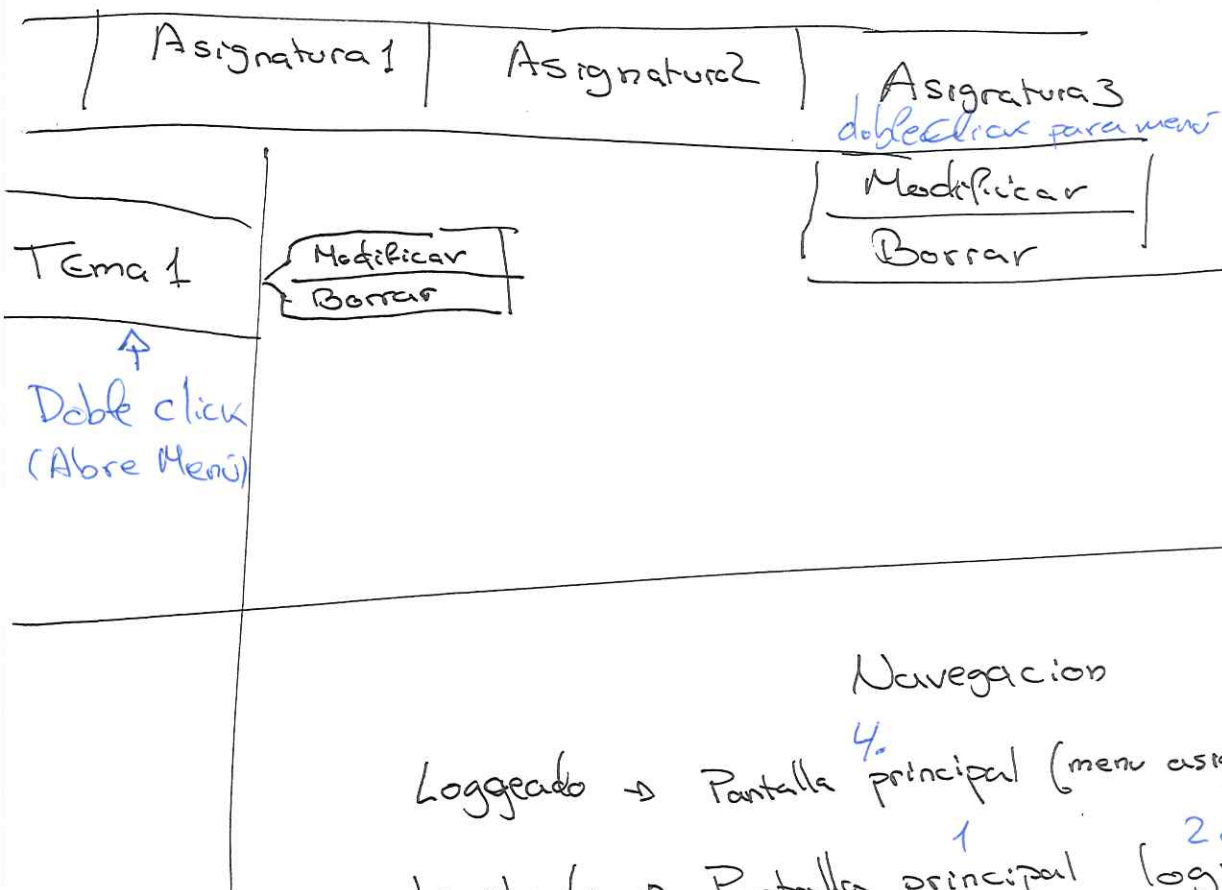 Asignatura 1 Asignatura2 Asignatura3
doble click para menú
Modificar
Borrar
Tema 1
Modificar
Borrar
Doble click
(Abre Menú)
Navegacion
4.
Loggeado → Pantalla principal (menu
1 2.
→ Pantalla principal